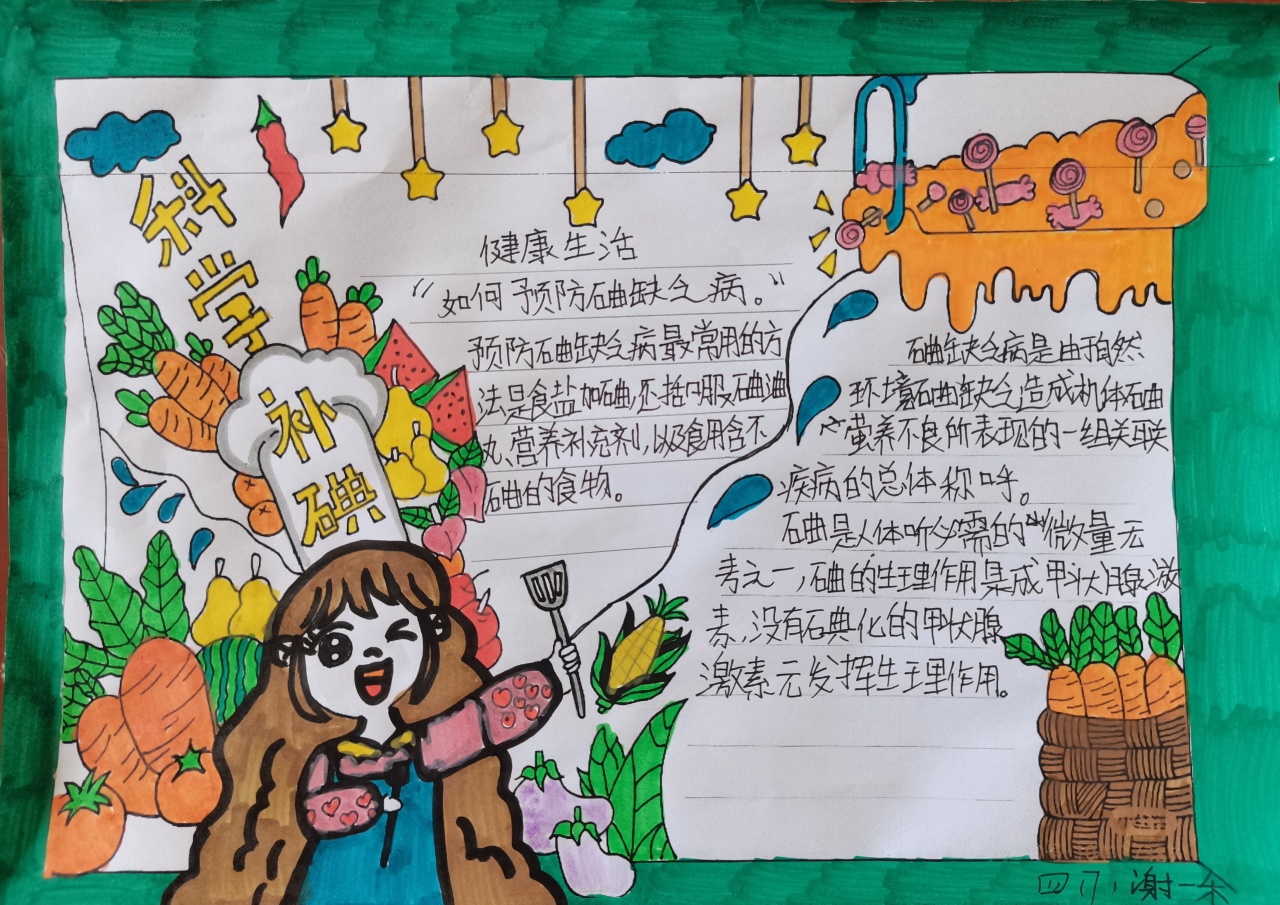 科学
补
碘
健康生活
“如何预防碘缺乏病。“
预防碘缺乏病最常用的方
法是食盐加碘,还括口服碘油
丸、营养补充剂,以及食用含不
碘的食物。
碘缺乏病是由于自然
环境碘缺乏造成机体碘
营养不良所表现的一组关联
疾病的总体称呼。
碘是人体所必需的微量元
素之一,碘的生理作用是成甲状腺激
素,没有碘化的甲状腺
激素无发挥生理作用。
谢一